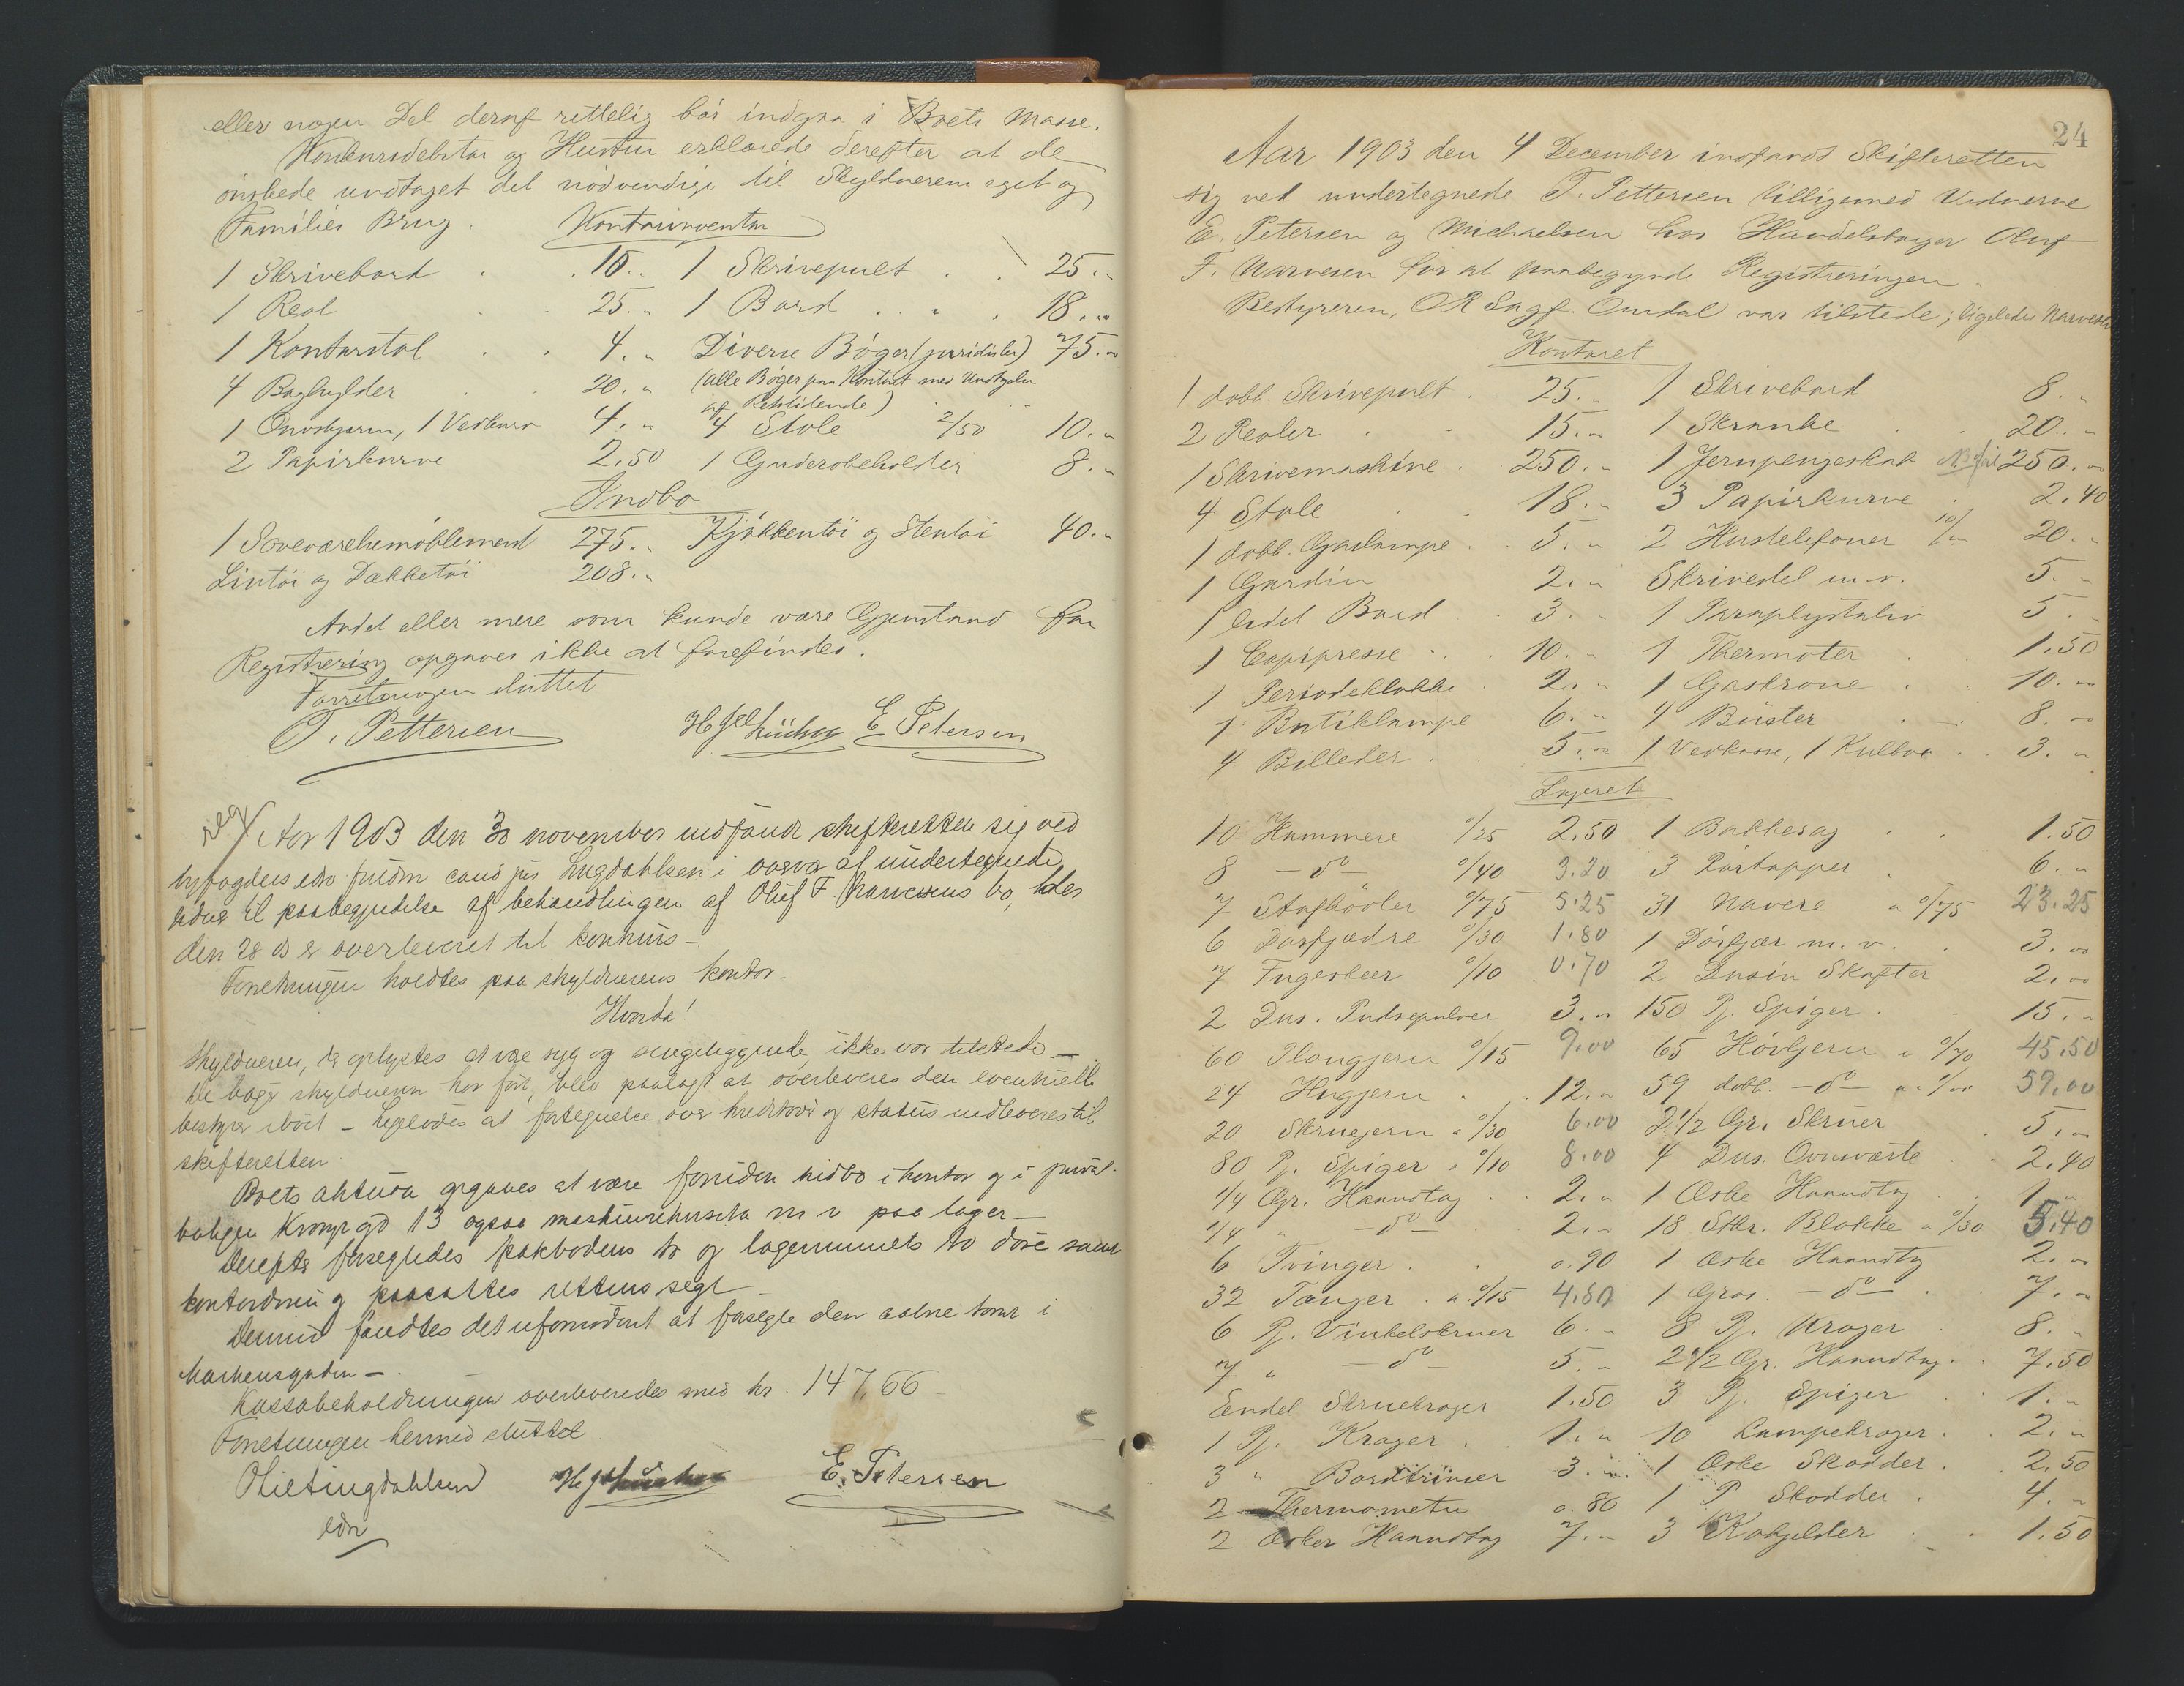 eller nogen Del deraf rettelig bör indgaa i Boets Masse.
Konkursdebitor og Hustru erklærede derefter at de
önskede undtaget det nödvendige til Skyldnerens eget og
Families Brug.
Kontorinventar
1 Skrivebord . . 15 „ 1 Skrivepult . . 25 „
1 Reol . 25 „ 1 Bord . . . 18. „
1 Kontorstol . . 4. „ Diverse Böger (juridiske) 75. „
4 Boghylder . . 20. „ (alle Böger paa Kontoret med Undtagelse
af Retstidende)
1 Ovnskjærm, 1 Vedkurv 4. „ 4 Stole 2/50 10. „
2 Papirkurve 2.50 1 Garderobeholder 8. „
Indbo
1 Soveværelsemöblement 275. „ Kjökkentöi og Stentöi 40. „
Lintöi og Dækketöi 208. „
Andet eller mere som kunde være Gjenstand for
Registrering opgaves ikke at forefindes.
Forretningen sluttet
T. Pettersen E Petersen
Aar 1903 den 30 november indfandt skifteretten sig ved
byfogdens edsv. fuldm cand jur Lugdahlsen i overvær af undertegnede
vidner til paabegyndelse af behandlingen af Oluf F Narvesens bo, der
den 28 ds er overleveret til konkurs –
Forretningen holdtes paa skyldnerens kontor.
Hvorda!
Skyldneren, der oplystes at være syg og sengeliggende, ikke var tilstede –
De böger skyldneren har fört, blev paalagt at overleveres den eventuelle
bestyrer i boet – ligeledes at fortegnelse over kreditorer og status indleveres til
skifteretten.
Boets aktiva opgaves at være foruden indbo i kontor og i privat-
boligen Kronpr gd 13 ogsaa maskinrekvisita m v paa lager –
Derefter forsegledes pakbodens to og lagerrummets to döre samt
kontordören og paasattes rettens segl
Dermed fandtes det ufornödent at forsegle den aabne tomt i
Markensgaden –
Kassabeholdningen overleveredes med kr. 147,66 –
Forretningen hermed sluttet
E. Petersen
edsv
24
Aar 1903 den 4 December indfandt Skifteretten
sig ved undertegnede T. Pettersen tilligemed Vidnerne
E. Petersen og Michaelsen hos Handelsborger Oluf
F. Narvesen for at paabegynde Registreringen.
Bestyreren, O.R.Sagf. Omdal var tilstede; ligeledes Narvesen
Kontoret
1 dobb. Skrivepult . 25. „ 1 Skrivebord 8. „
2 Reoler . . 15. „ 1 Skranke . . 20. „
1 Skrivemaskine . 250. „ 1 Jernpengeskab 250. „
4 Stole . . 18. „ 3 Papirkurve . 2.40
1 dobb. Gaslampe . . 5. „ 2 Hustelefoner 10/„ 20. „
1 Gardin 2. „ Skrivedel m.v. 5. „
1 lidet Bord . . 3. „ 1 Paraplystativ 5 „
1 Copipresse . . . 10. „ 1 Thermoter . . 1.50
1 Periodeklokke . 2. „ 1 Gaskrone . . 10. „
1 Butiklampe 6. „ 4 Büster . . 8. „
4 Billeder . . 5. „ 1 Vedkasse, 1 Kulbox . 3. „
Lageret
10 Hammere „/25 2.50 1 Bakkesag . . 1.50
8 – do – „/40 3.20 3 6. „
7 Stafhövler „/75 5.25 31 Navere a „/75 23.25
6 Dörfjædre „/30 1.80 1 Dörfjær m. v. . 3. „
7 Fugeskeer „/10 0.70 2 Dusin Skafter 2. „
2 Dus. Pudsepulver 3. „ 150 Pj. Spiger . . 15. „
60 Plougjern „/15 9.00 65 Hövljern a „/70 45.50
24 Hugjern . . 12. „ 59 dobb – do – a 1/00 59.00
20 Skruejern a „/30 6.00 2 1/2 Gr. Skruer . 5. „
80 Pj. Spiger a „/10 8.00 4 Dus. Ovnsværte . . 2.40
1/4 Gr. Haandtag . . 2. „ 1 Æske Haandtag . 1 „
1/4 „ – do – . 2. „ 18 Stkr. Blokke a „/30 5.40
6 Tvinger . . 0.90 1 Æske Haandtag 2. „
32 Tænger . a „/15 4.80 1 Gros. – do – . . 7. „
6 Pj. Vinkelskruer 6. „ 8 Pj. Krager . 8. „
7 „ – do – 5. „ 2 1/2 Gr. Haandtag . . 7.50
Endel Skruekrager 1.50 3 Pj. Spiger . . 1. „
1 Pj. Krager . . 1. „ 10 Lampekrager . . 2. „
3 „ 3. „ 1 Æske Skodder . . 2.50
2 Thermometre 0.80 1 P Skodder . 4. „
2 Æsker Haandtag 7. „ 3 . . 1.50